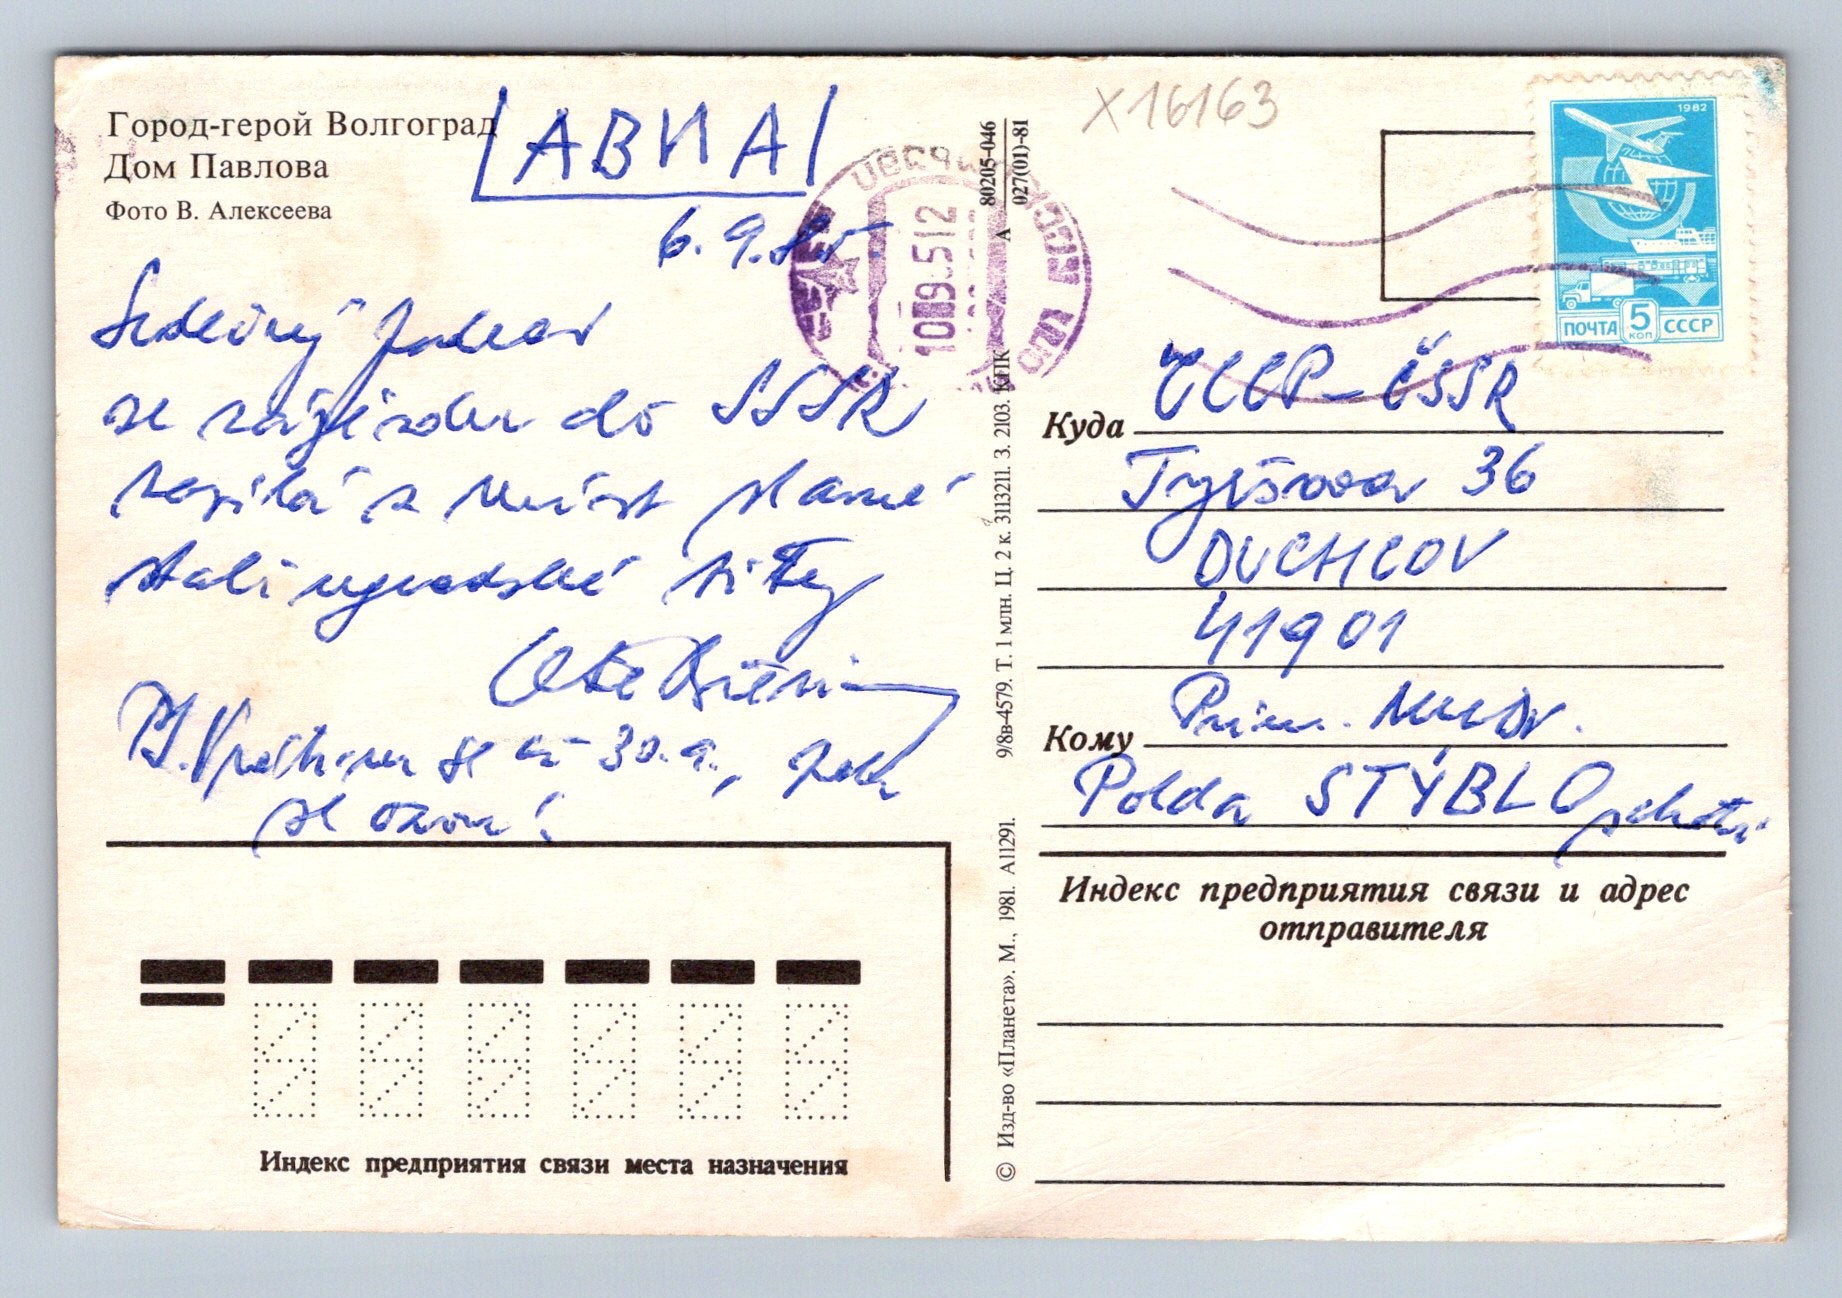 Город-герой Волгоград
Дом Павлова
Фото В. Алексеева
АВИА
6.9.85
Srdečný pozdrav
se zájezdu do SSSR
zasílá z míst slavné
stalingradské bitvy
P.S. se 30.9.,
X16163
80205-046
027(01)-81
А
1982
ПОЧТА 5 КОП СССР
10 9 85 12
Куда ЧССР-ČSSR
Tyršova 36
DUCHCOV
41901
Кому Prim. MUDr.
Polda STÝBLO
Индекс предприятия связи и адрес
отправителя
Индекс предприятия связи места назначения
© Изд-во «Планета». М., 1981. А11291. 9/8в-4579. Т. 1 млн. Ц. 2 к. 3113211. З. 2103. КПК